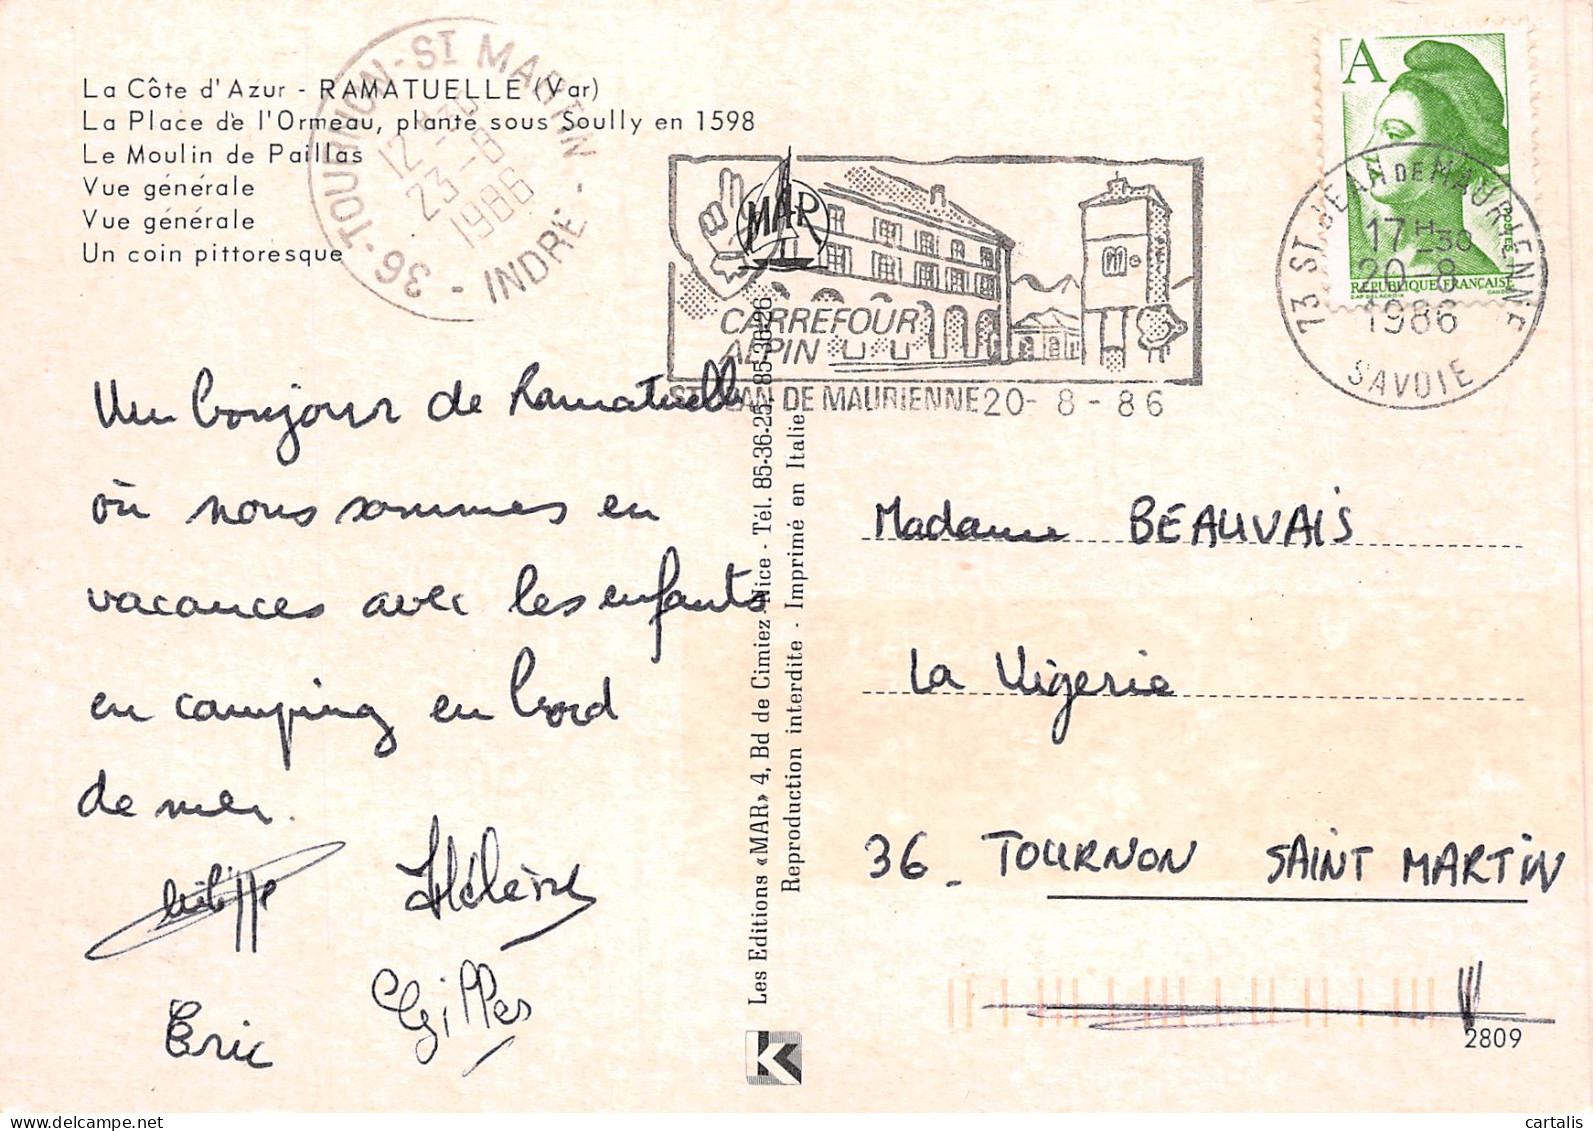 La Côte d'Azur - RAMATUELLE (Var)
La Place de l'Ormeau, planté sous Soully en 1598
Le Moulin de Paillas
Vue générale
Vue générale
Un coin pittoresque
36-TOURNON-ST MARTIN - INDRE -
12 H 30
23-8
1986
MAR
CARREFOUR
ALPIN
ST JEAN DE MAURIENNE 20-8-86
A
POSTES
RÉPUBLIQUE FRANÇAISE
73 ST JEAN DE MAURIENNE
17 H 30
20-8
1986
SAVOIE
Un bonjour de Ramatuelle
où nous sommes en
vacances avec les enfants
en camping en bord
de mer.
Philippe Hélène
Eric Gilles
Les Editions «MAR» 4, Bd de Cimiez - Nice - Tél. 85-36-25 - 85-36-26
Reproduction interdite - Imprimé en Italie
K
Madame BEAUVAIS
La Vigerie
36 - TOURNON SAINT MARTIN
2809
delcampe.net
cartalis